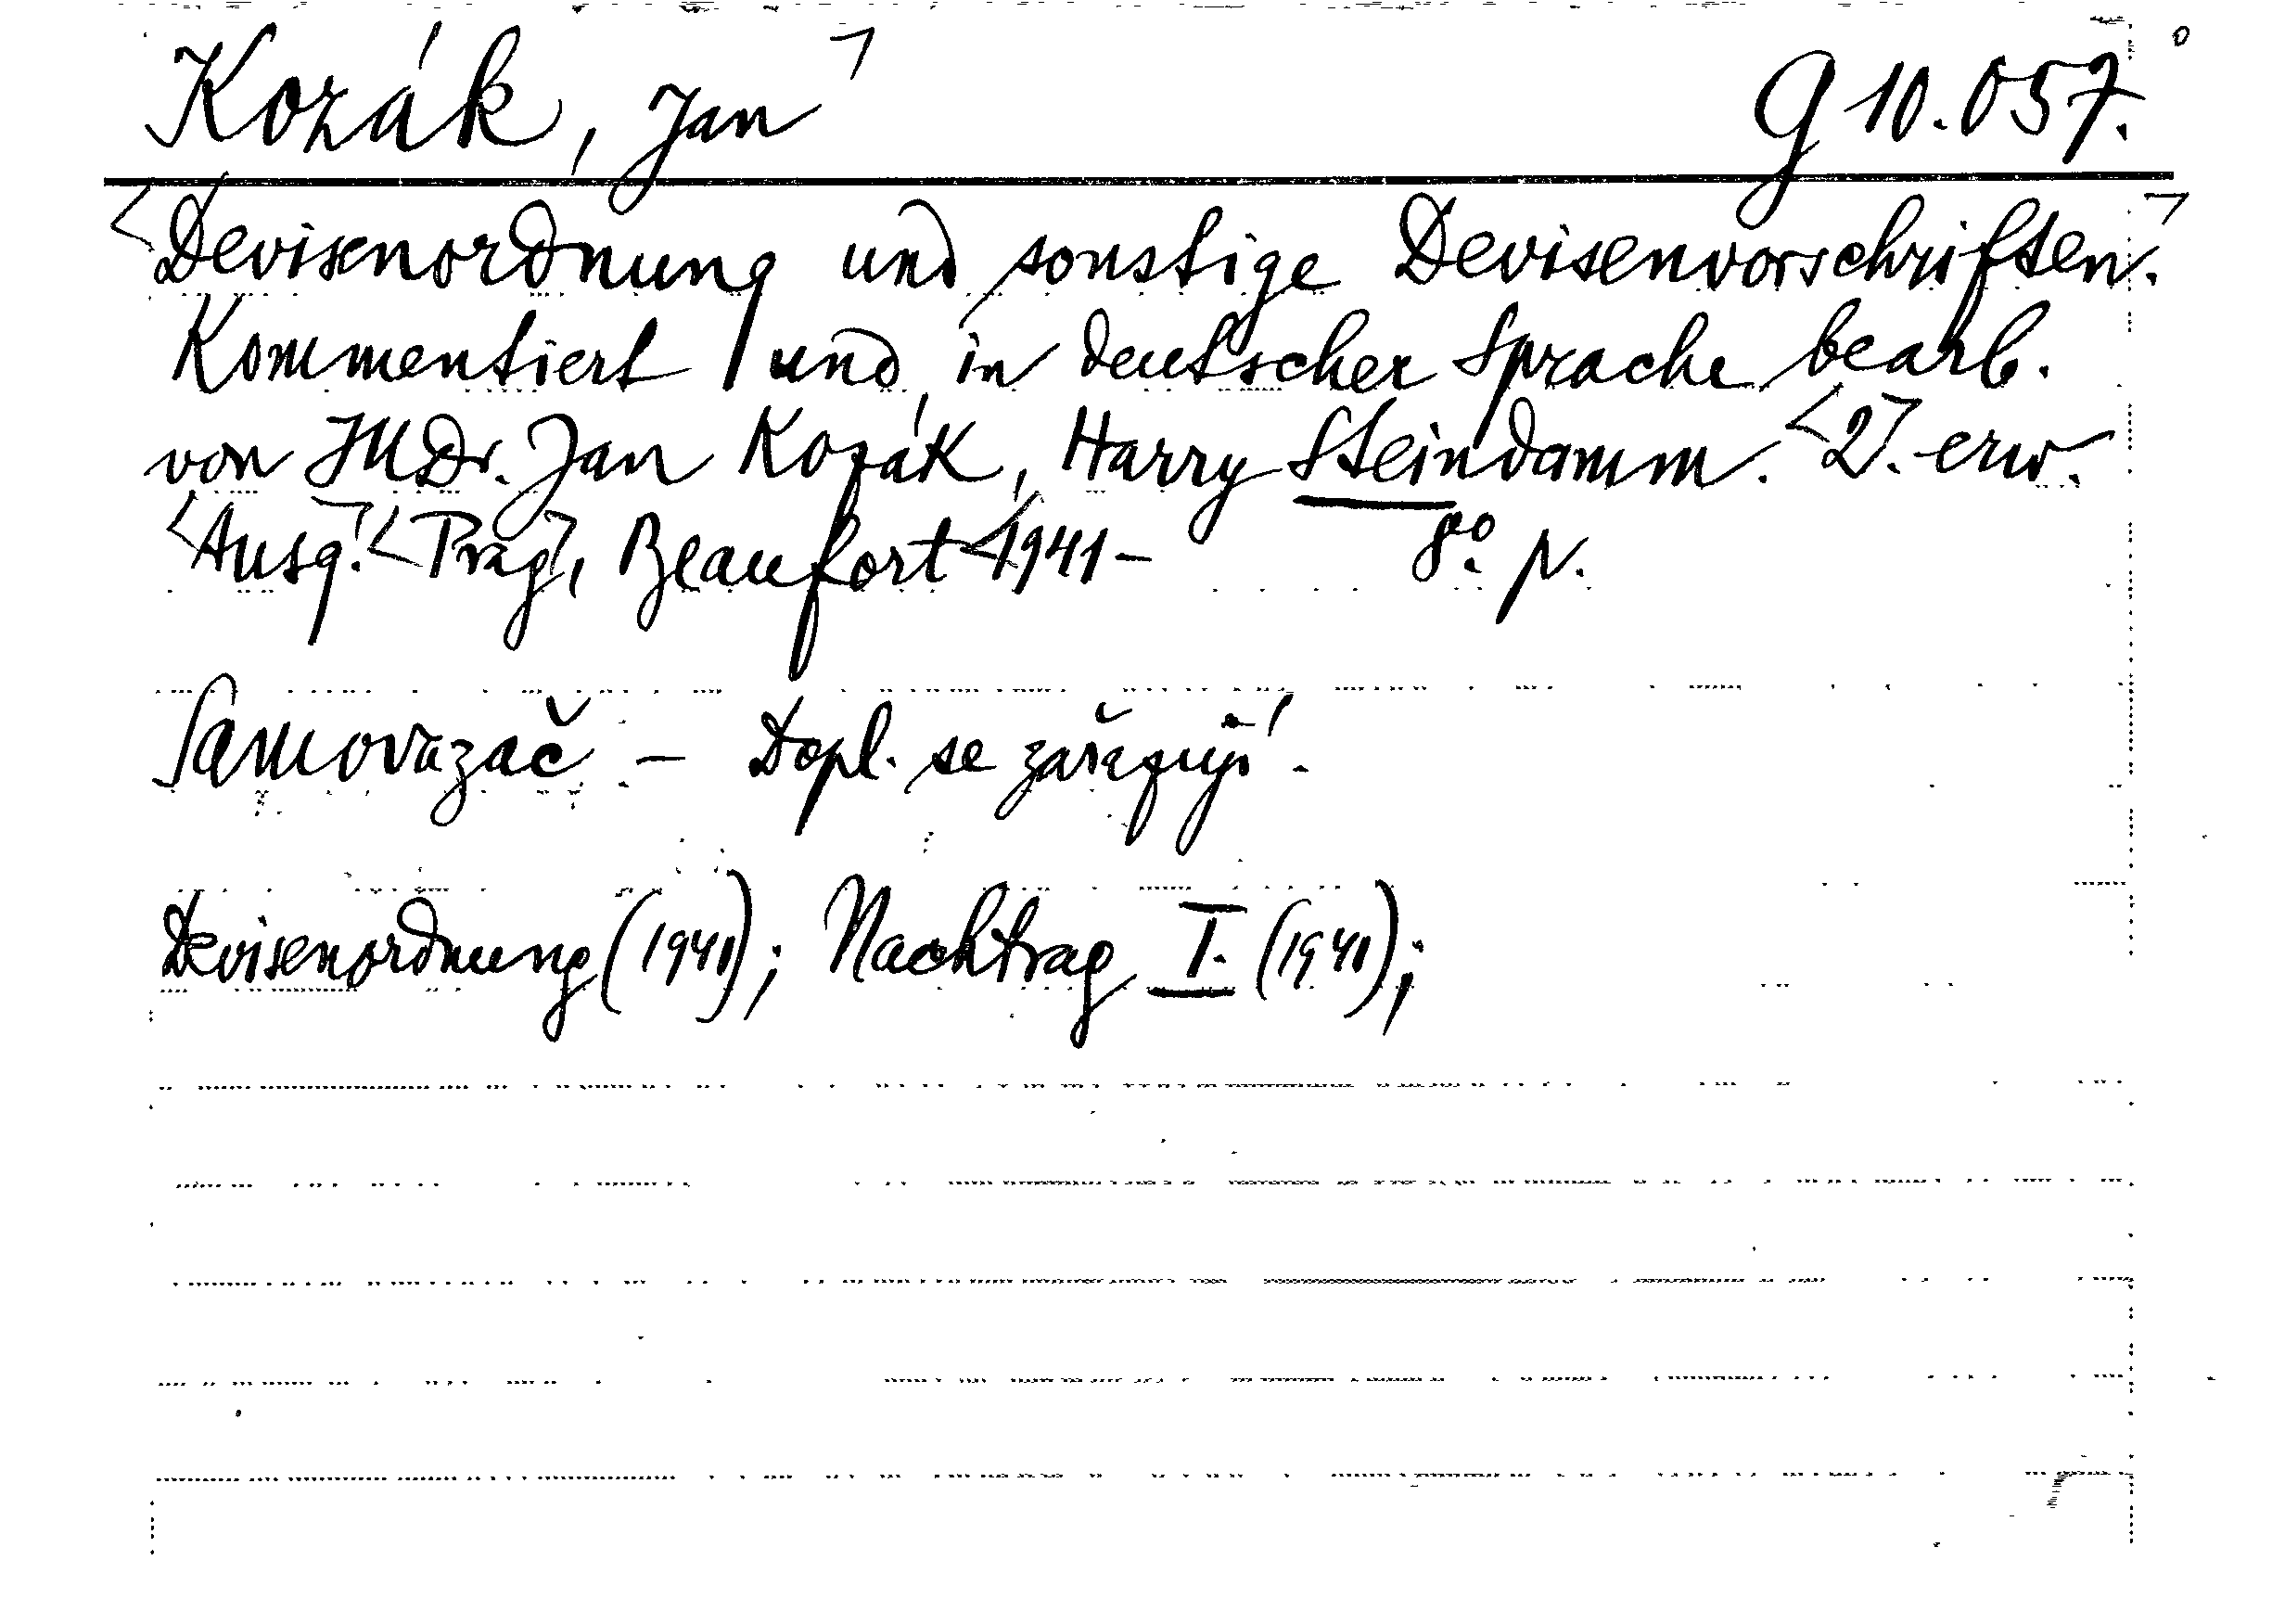 Kozák, Jan G 10.057.
Devisenordnung und sonstige Devisenvorschriften.
Kommentiert und in deutscher Sprache bearb.
von JUDr. Jan Kozák, Harry Steindamm. 2. erw.
Ausg. Prag, Beaufort 1941- 8° N.
Samovazač - Dopl. se zařazují.
Devisenordnung (1941); Nachtrag I. (1941);